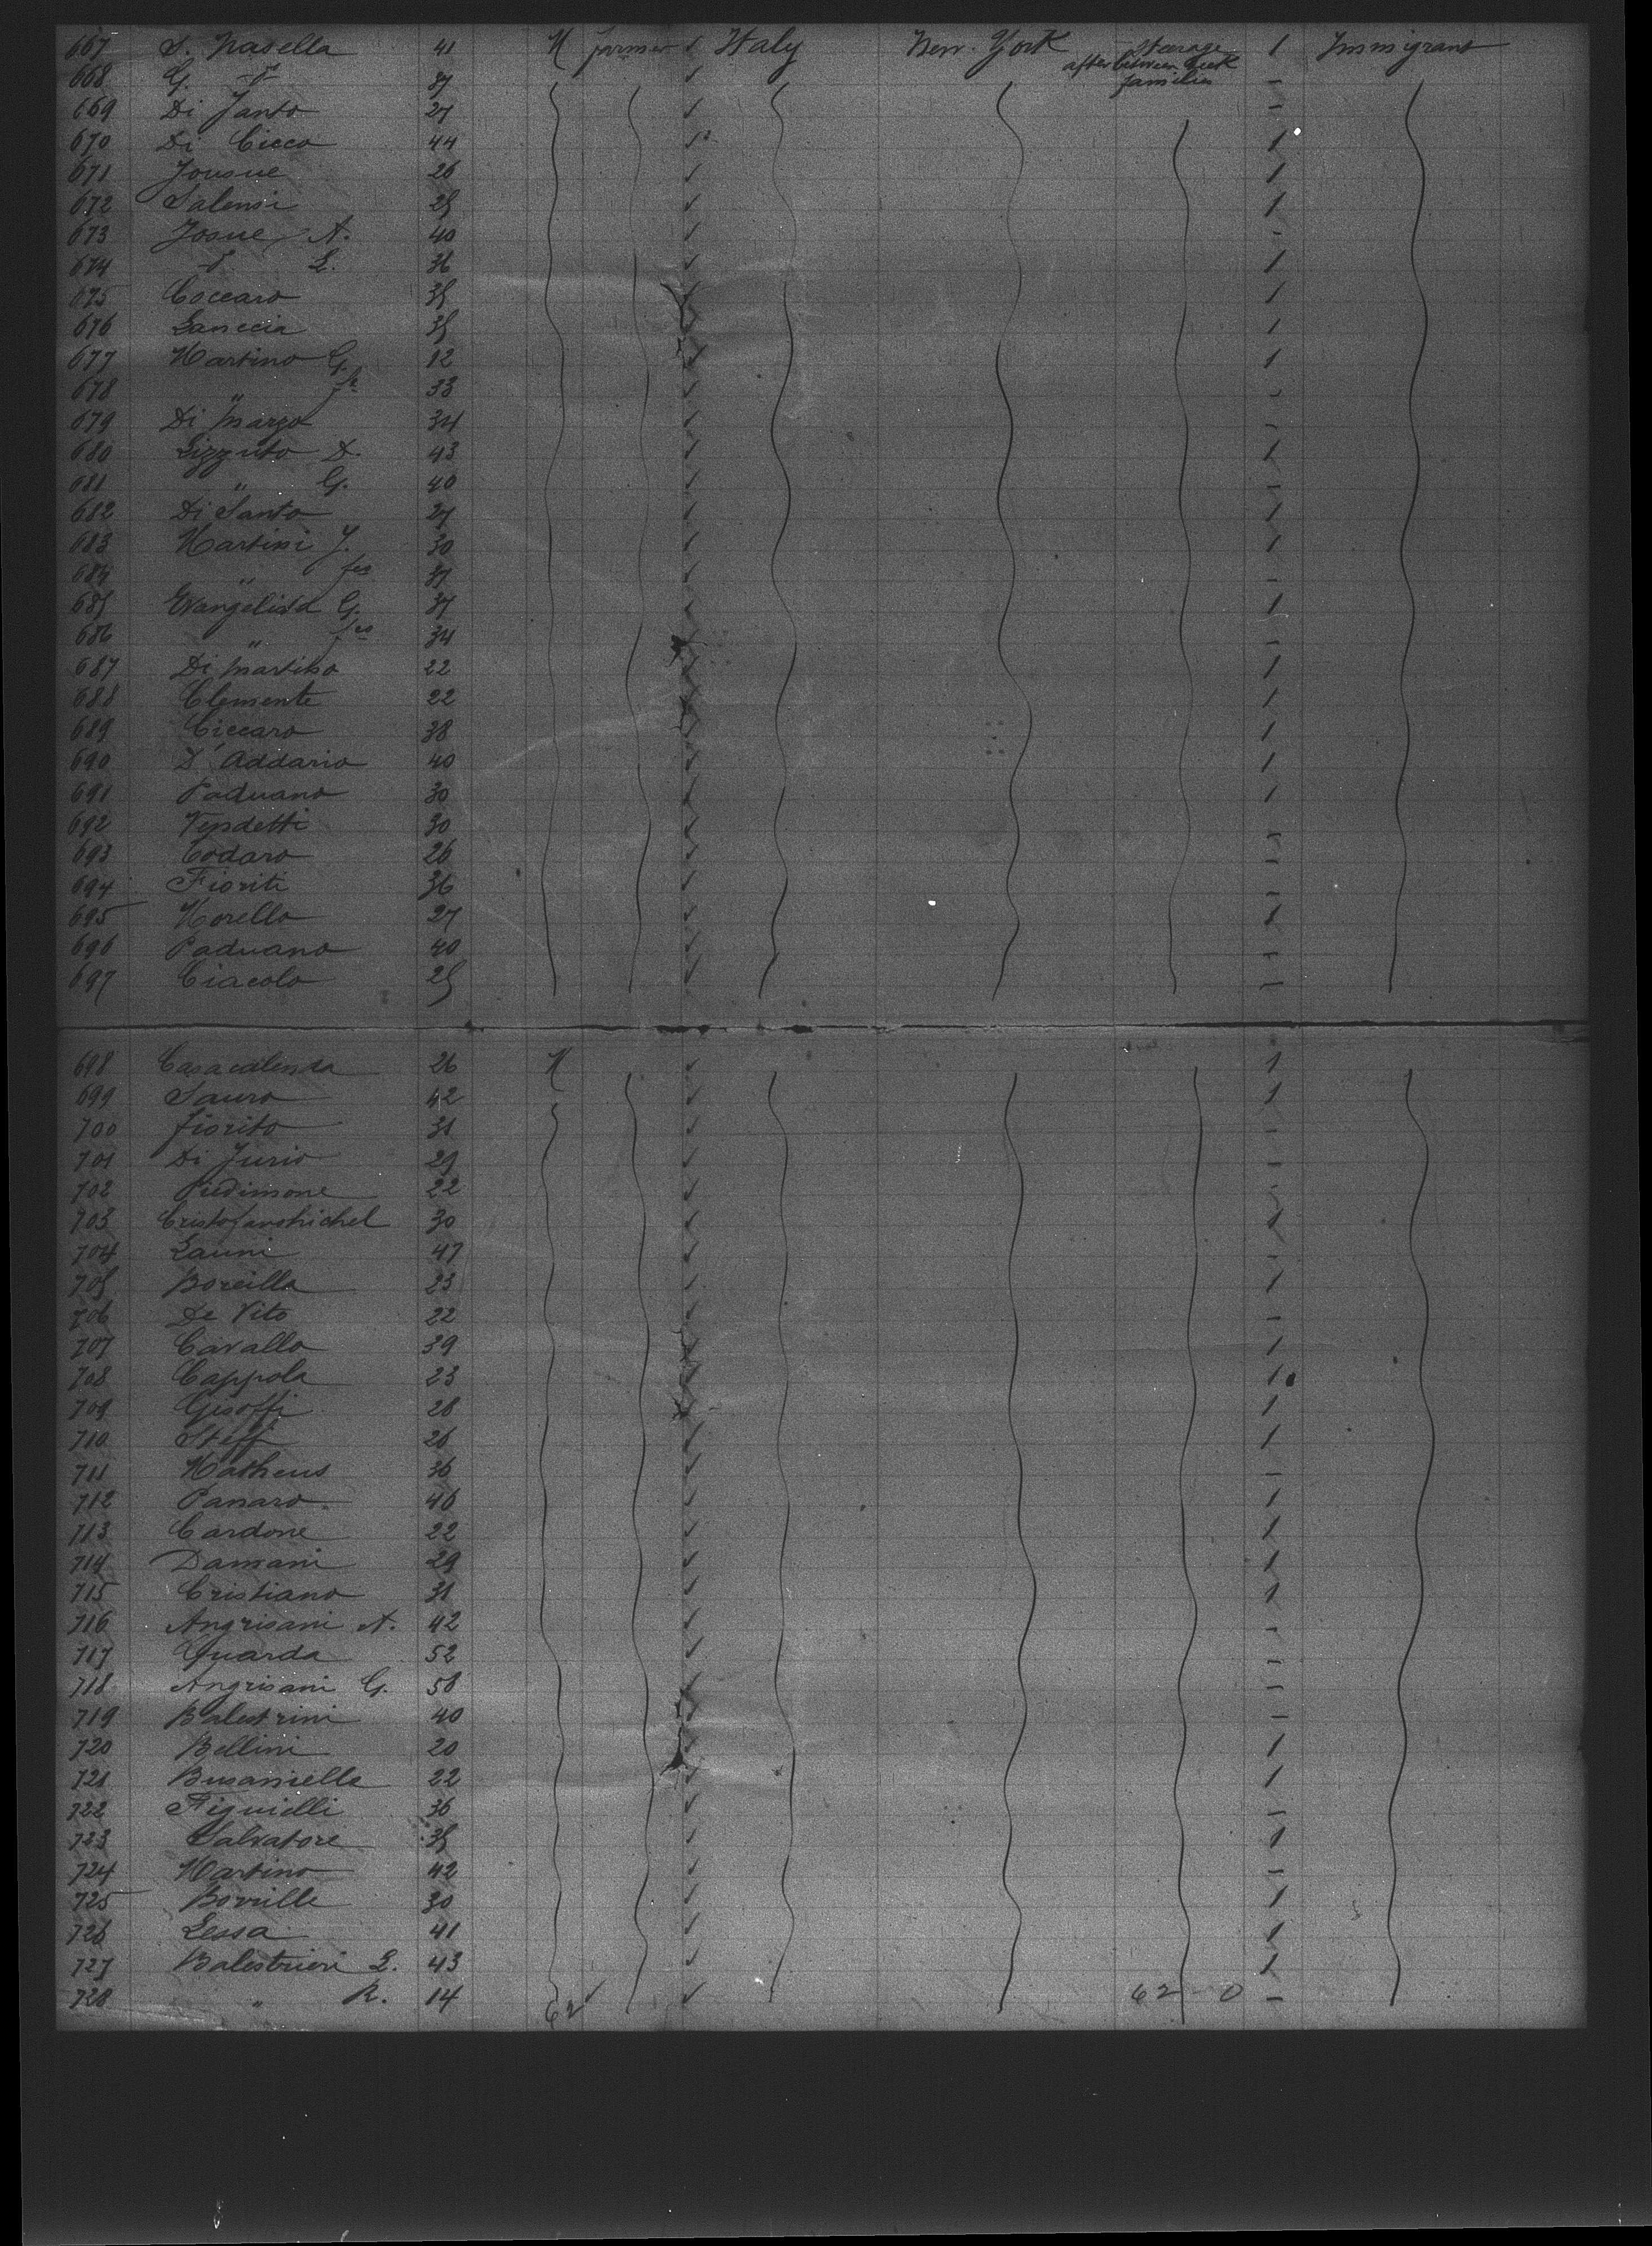 667 S. Nasella 41 M farmer ✓ Italy New-York Steerage after between deck families 1 Immigrant
668 G. d° 37 ✓ -
669 Di Janto 27 ✓ -
670 Di Cicco 44 ✓ 1
671 Jousue 26 ✓ 1
672 Salensi 25 ✓ 1
673 Josue A. 40 ✓ -
674 d° L. 36 ✓ 1
675 Coccaro 35 ✓ 1
676 Lanccia 35 ✓ 1
677 Martino G. 12 ✓ 1
678 " 33 ✓ -
679 Di Marzo 34 ✓ -
680 Lizzuto D. 43 ✓ 1
681 " G. 40 ✓ -
682 Di Santo 27 ✓ 1
683 Martini J. 30 ✓ 1
684 " fco 37 ✓ -
685 Evangelista G. 37 ✓ 1
686 " fco 34 ✓ -
687 Di Martino 22 ✓ 1
688 Clemente 22 ✓ 1
689 Ciccaro 38 ✓ 1
690 D'Addario 40 ✓ 1
691 Paduano 30 ✓ 1
692 Vendetti 30 ✓ -
693 Codaro 26 ✓ -
694 Fioriti 36 ✓ -
695 Morello 27 ✓ 1
696 Paduano 40 ✓ -
697 Ciacolo 25 ✓ -
698 Casacalenda 26 M ✓ 1
699 Sauro 42 ✓ 1
700 Fiorito 31 ✓ -
701 Di Jurio 29 ✓ -
702 Piedimone 22 ✓ -
703 30 ✓ 1
704 Launi 47 ✓ -
705 Borcilla 23 ✓ 1
706 De Vito 22 ✓ -
707 Cavallo 39 ✓ 1
708 Cappola 23 ✓ 1
709 Gisoffi 28 ✓ 1
710 Steff 26 ✓ 1
711 Matheus 36 ✓ -
712 Panaro 46 ✓ 1
713 Cardone 22 ✓ 1
714 Damani 29 ✓ 1
715 Cristiano 31 ✓ 1
716 Angrisani A. 42 ✓ -
717 Quarda 52 ✓ -
718 Angrisani G. 56 ✓ -
719 Balestrini 40 ✓ -
720 Bellini 20 ✓ 1
721 Busanielle 22 ✓ 1
722 Fiquielli 36 ✓ -
723 Salvatore 35 ✓ 1
724 Martino 42 ✓ -
725 Boville 30 ✓ 1
726 Lessa 41 ✓ 1
727 Balestrieri L. 43 ✓ 1
728 " R. 14 62 ✓ ✓ 62 - 0 -